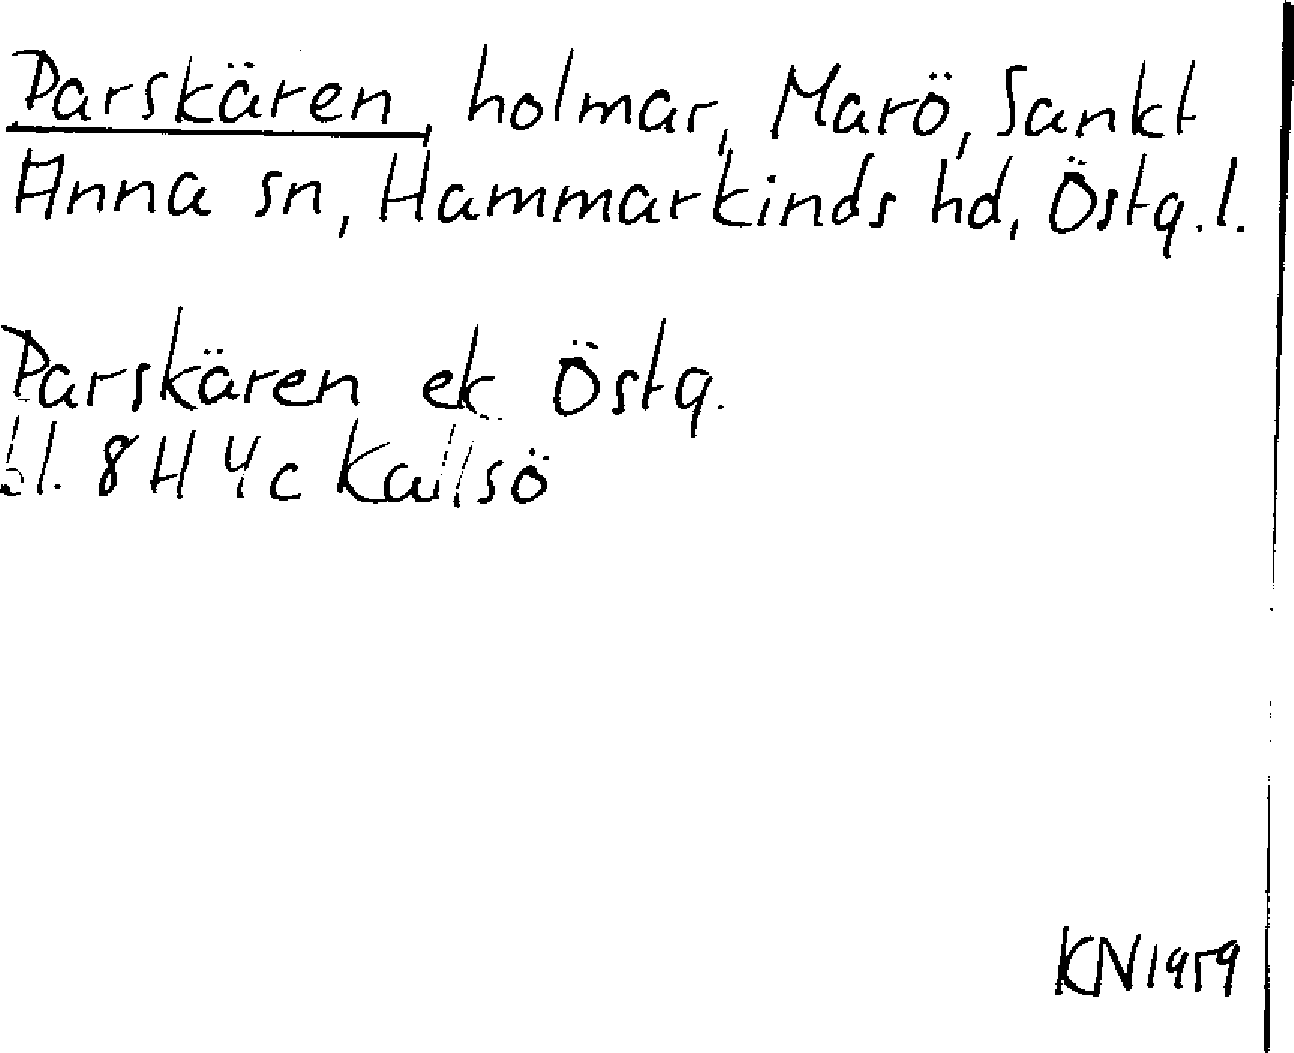 Parskären, holmar, Marö, Sankt
Anna sn, Hammarkinds hd, Östg. l.
Parskären ek Östg.
bl. 8H 4c Kallsö
KN 1959